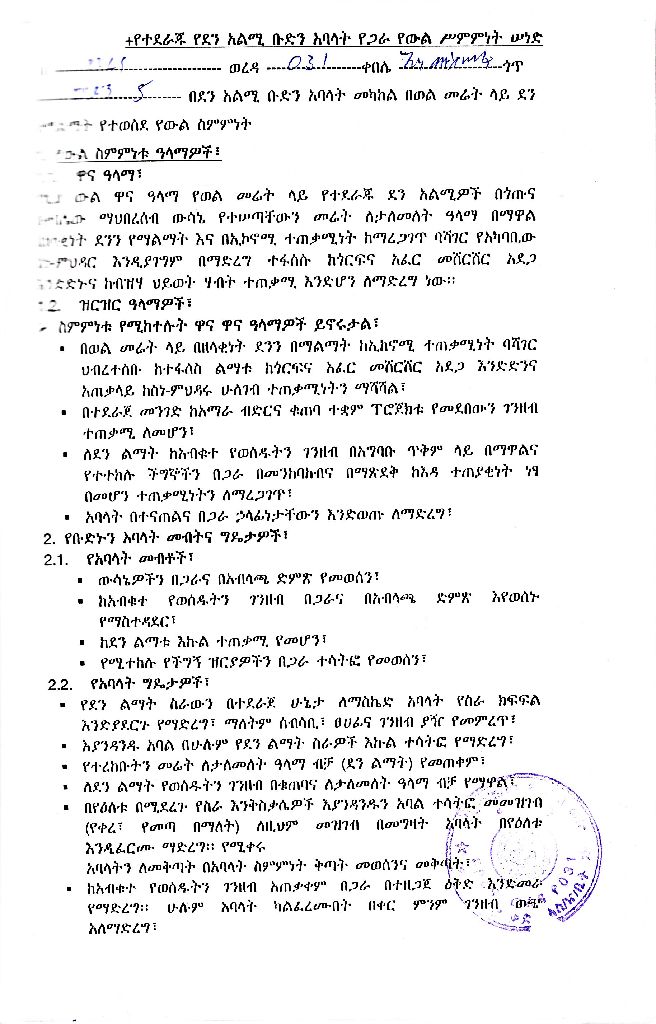 +የተደራጁ የደን አልሚ ቡድን አባላት የጋራ የውል ሥምምነት ሠነድ
ወረዳ 031 ቀበሌ ጎጥ
5 በደን አልሚ ቡድን አባላት መካከል በወል መሬት ላይ ደን
የተወሰደ የውል ስምምነት
ስምምነቱ ዓላማዎች፤
ዋና ዓላማ፤
ውል ዋና ዓላማ የወል መሬት ላይ የተደራጁ ደን አልሚዎች በጎጡና
ማህበረሰብ ውሳኔ የተሠጣቸውን መሬት ለታለመለት ዓላማ በማዋል
ደንን የማልማት እና በኢኮኖሚ ተጠቃሚነት ከማረጋገጥ ባሻገር የአካባቢው
ምህዳር እንዲያገግም በማድረግ ተፋሰሱ ከጎርፍና አፈር መሸርሸር አደጋ
ከብዝሃ ህይወት ሃብት ተጠቃሚ እንድሆን ለማድረግ ነው፡፡
1.2. ዝርዝር ዓላማዎች፤
ስምምነቱ የሚከተሉት ዋና ዋና ዓላማዎች ይኖሩታል፤
▪ በወል መሬት ላይ በዘላቂነት ደንን በማልማት ከኢኮኖሚ ተጠቃሚነት ባሻገር
ህብረተሰቡ ከተፋሰስ ልማቱ ከጎርፍና አፈር መሸርሸር አደጋ እንድድንና
አጠቃላይ ከስነ-ምህዳሩ ሁለገብ ተጠቃሚነትን ማሻሻል፤
▪ በተደራጀ መንገድ ከአማራ ብድርና ቁጠባ ተቋም ፕሮጀክቱ የመደበውን ገንዘብ
ተጠቃሚ ለመሆን፤
▪ ለደን ልማት ከአብቁተ የወሰዱትን ገንዘብ በአግባቡ ጥቅም ላይ በማዋልና
የተተከሉ ችግኞችን በጋራ በመንከባከብና በማጽደቅ ከእዳ ተጠያቂነት ነፃ
በመሆን ተጠቃሚነትን ለማረጋገጥ፤
▪ አባላት በተናጠልና በጋራ ኃላፊነታቸውን እንድወጡ ለማድረግ፤
2. የቡድኑን አባላት መብትና ግዴታዎች፤
2.1. የአባላት መብቶች፤
▪ ውሳኔዎችን በጋራና በአብላጫ ድምጽ የመወሰን፤
▪ ከአብቁተ የወሰዱትን ገንዘብ በጋራና በአብላጫ ድምጽ እየወሰኑ
የማስተዳደር፤
▪ ከደን ልማቱ እኩል ተጠቃሚ የመሆን፤
▪ የሚተከሉ የችግኝ ዝርያዎችን በጋራ ተሳትፎ የመወሰን፤
2.2. የአባላት ግዴታዎች፤
▪ የደን ልማት ስራውን በተደራጀ ሁኔታ ለማስኬድ አባላት የስራ ክፍፍል
እንድያደርጉ የማድረግ፤ ማለትም ሰብሳቢ፤ ፀሀፊና ገንዘብ ያዥ የመምረጥ፤
▪ እያንዳንዱ አባል በሁሉም የደን ልማት ስራዎች እኩል ተሳትፎ የማድረግ፤
▪ የተረከቡትን መሬት ለታለመለት ዓላማ ብቻ (ደን ልማት) የመጠቀም፤
▪ ለደን ልማት የወሰዱትን ገንዘብ በቁጠባና ለታለመለት ዓላማ ብቻ የማዋል፤
▪ በየዕለቱ በሚደረጉ የስራ እንቅስቃሴዎች እያንዳንዱን አባል ተሳትፎ መመዝገብ
(የቀረ፤ የመጣ በማለት) ለዚህም መዝገብ በመግዛት አባላት በየዕለቱ
እንዲፈርሙ ማድረግ፡፡ የሚቀሩ
አባላትን ለመቅጣት በአባላት ስምምነት ቅጣት መወሰንና መቅጣት፤
▪ ከአብቁተ የወሰዱትን ገንዘብ አጠቃቀም በጋራ በተዘጋጀ ዕቅድ እንድመራ
የማድረግ፡፡ ሁሉም አባላት ካልፈረሙበት በቀር ምንም ገንዘብ ወጪ
አለማድረግ፤